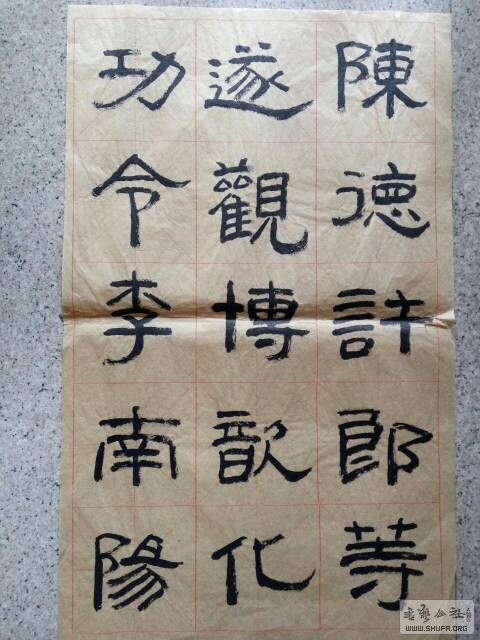 陳德許郎等
遂觀博歆化
功令李南陽
书艺公社
WWW.SHUFA.ORG